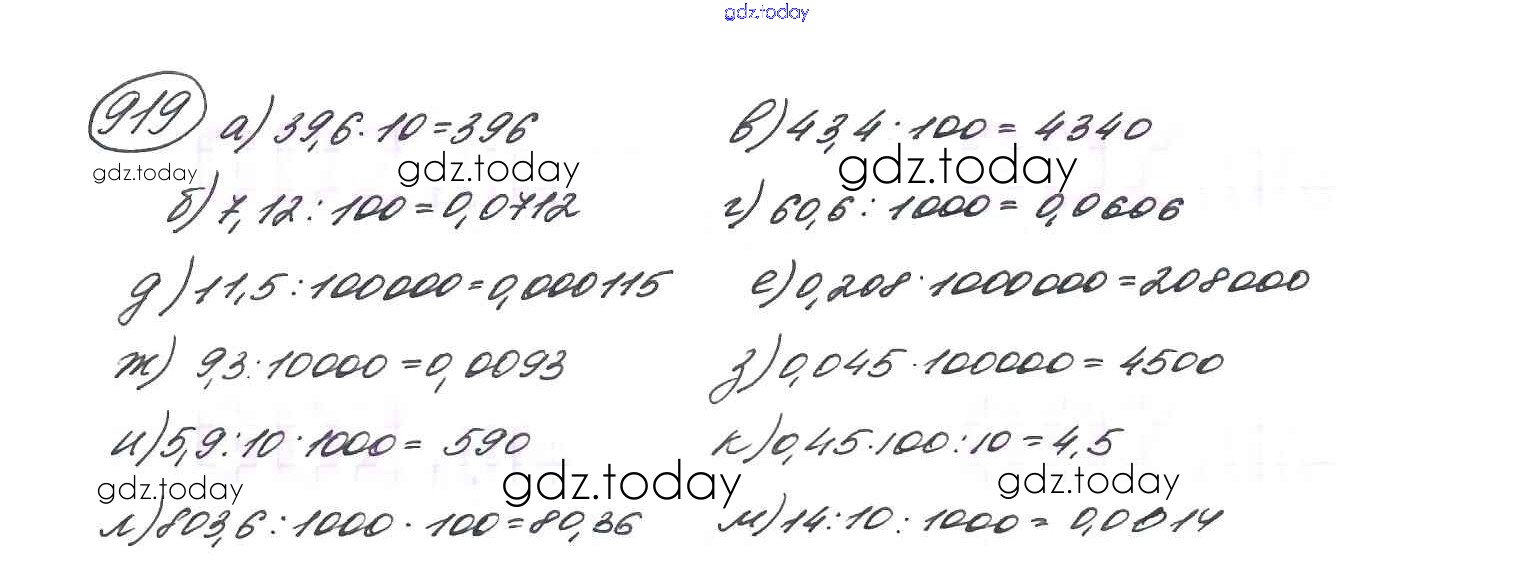 gdz.today
919 а) 39,6·10=396 в) 43,4·100= 4340
gdz.today gdz.today gdz.today
б) 7,12:100=0,0712 г) 60,6:1000= 0,0606
д) 11,5:100000=0,000115 е) 0,208·1000000=208000
ж) 9,3:10000=0,00093 з) 0,045·100000= 4500
и) 5,9:10·1000= 590 к) 0,45·100:10=4,5
gdz.today gdz.today gdz.today
л) 803,6:1000·100=80,36 м) 14:10:1000= 0,0014